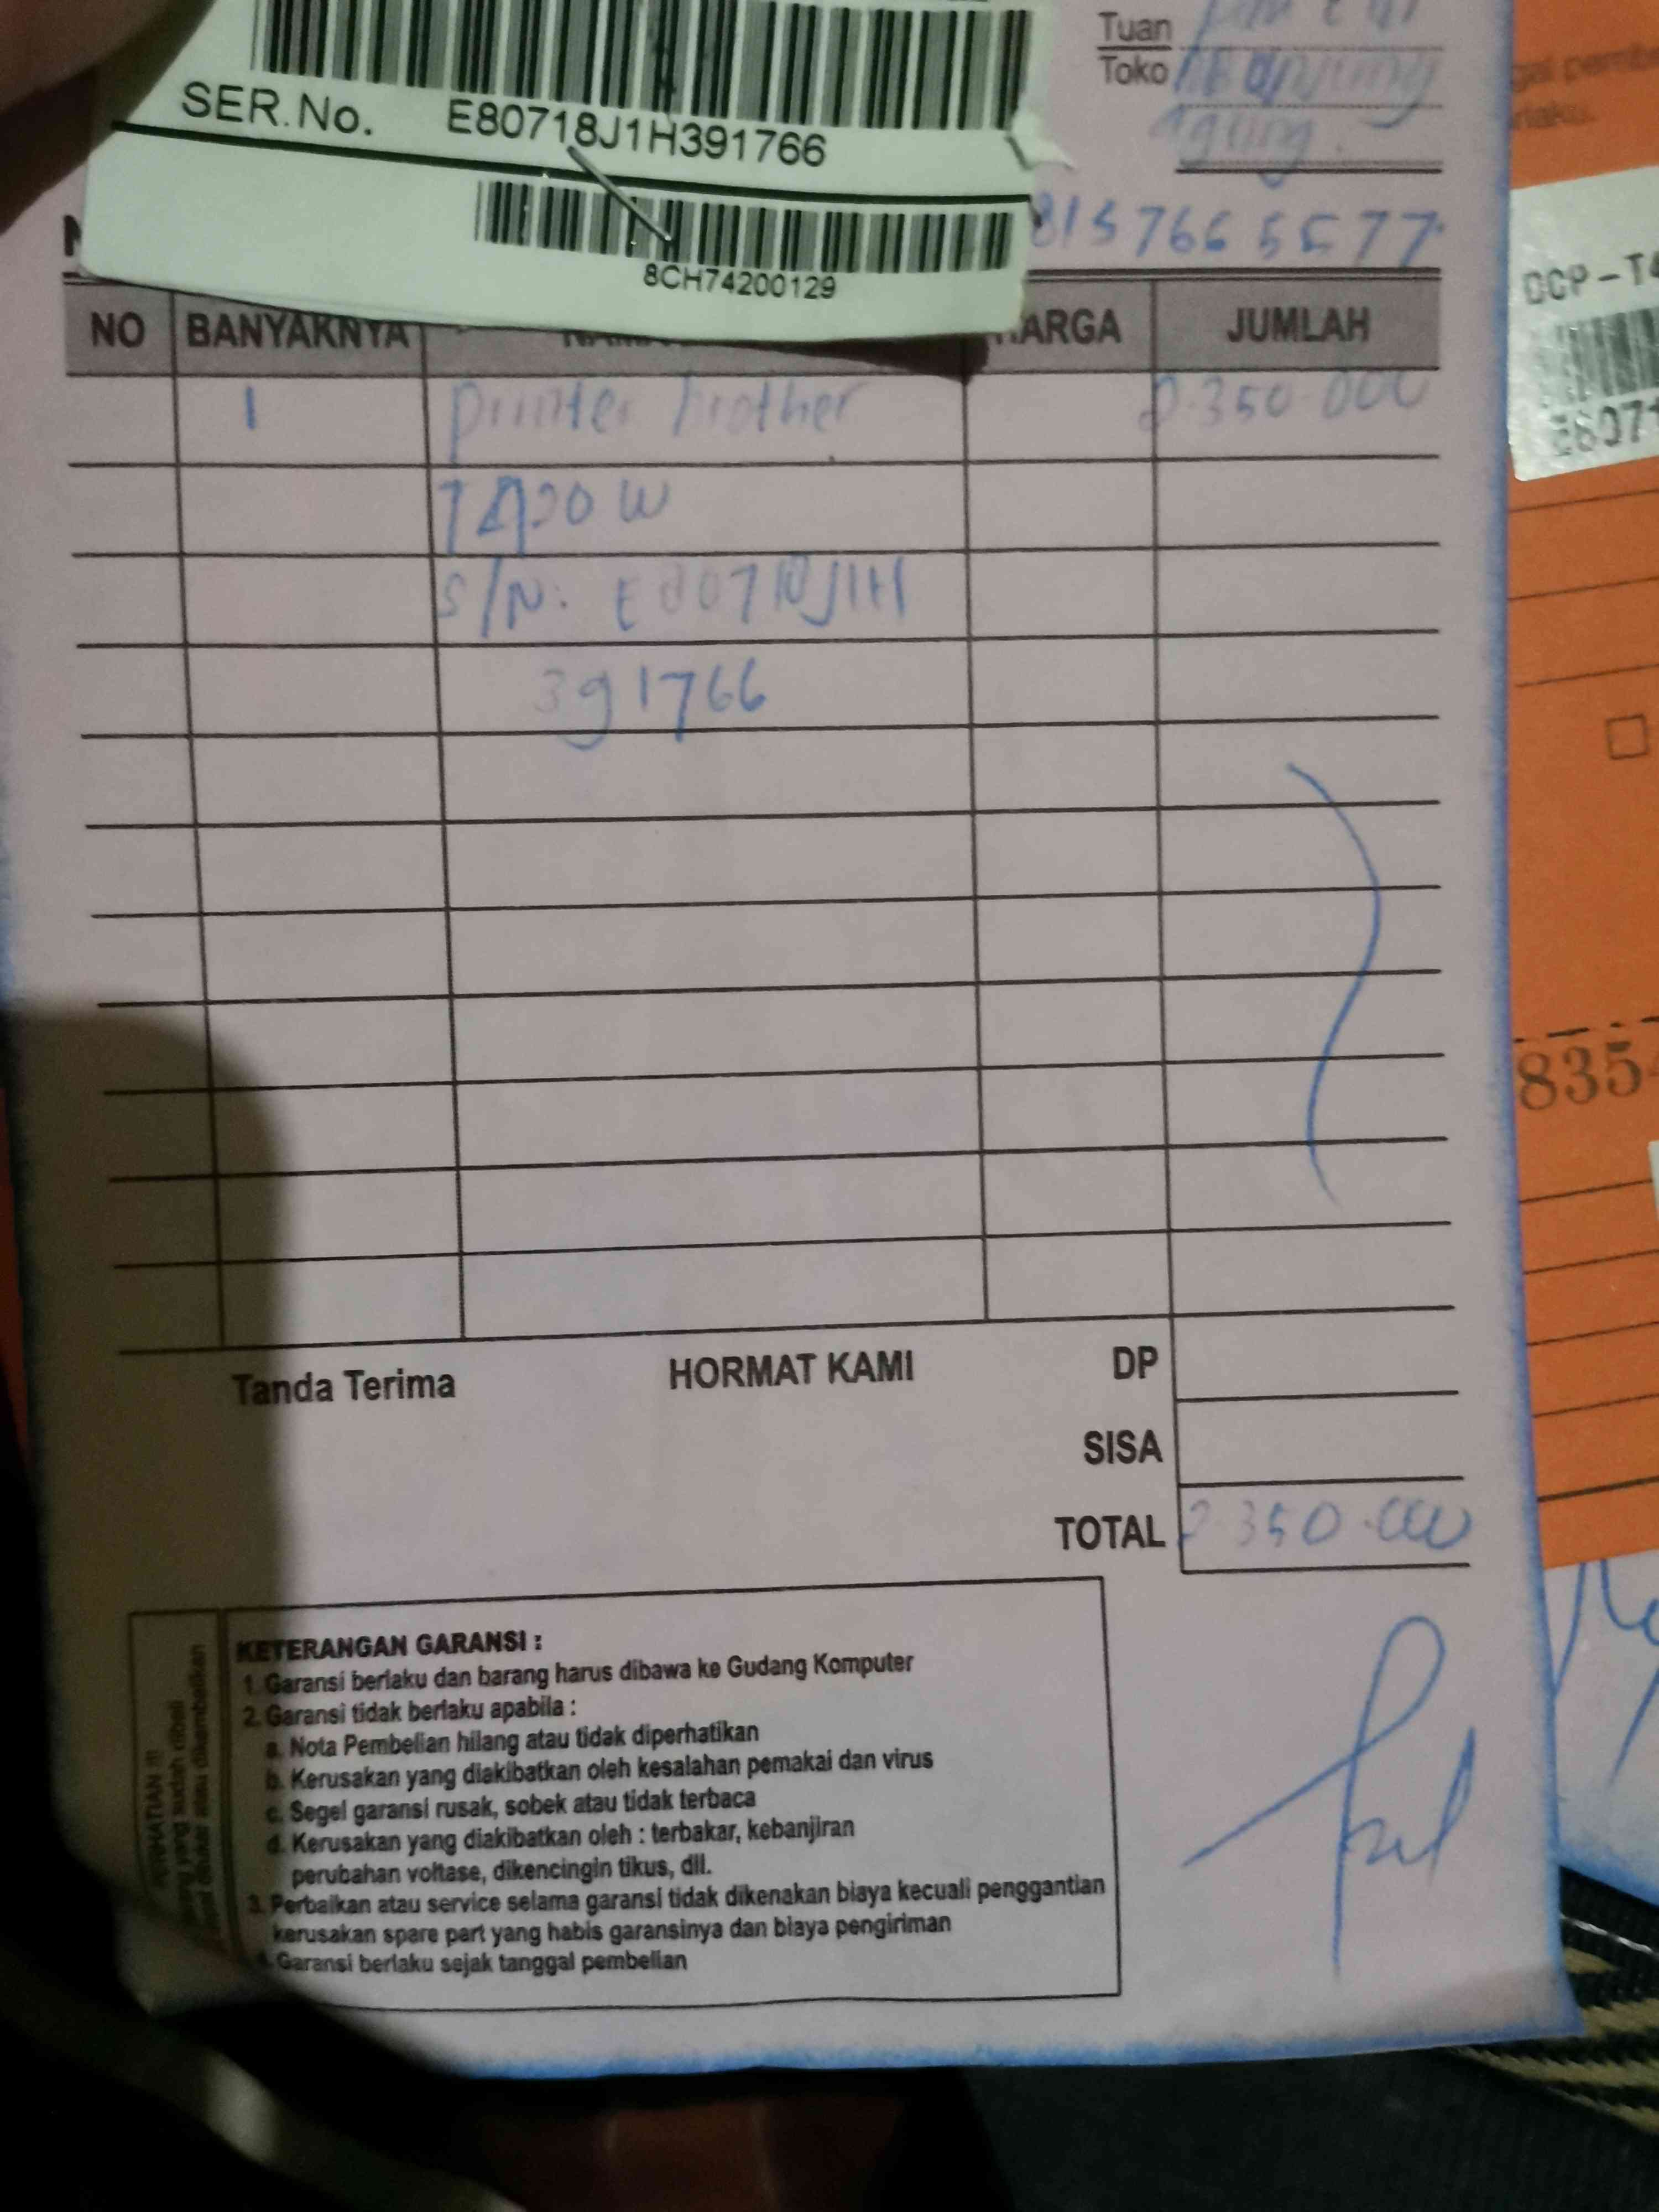 SER.No. E80718J1H391766
8CH74200129
Tuan
Toko
agung
81576655577
NO BANYAKNYA JUMLAH
1 printer brother 2.350.000
T420 W
S/N: E80718J1H
391766
Tanda Terima HORMAT KAMI DP
SISA
TOTAL 2.350.000
KETERANGAN GARANSI :
1. Garansi berlaku dan barang harus dibawa ke Gudang Komputer
2. Garansi tidak berlaku apabila :
a. Nota Pembelian hilang atau tidak diperhatikan
b. Kerusakan yang diakibatkan oleh kesalahan pemakai dan virus
c. Segel garansi rusak, sobek atau tidak terbaca
d. Kerusakan yang diakibatkan oleh : terbakar, kebanjiran
perubahan voltase, dikencingin tikus, dll.
3. Perbaikan atau service selama garansi tidak dikenakan biaya kecuali penggantian
kerusakan spare part yang habis garansinya dan biaya pengiriman
Garansi berlaku sejak tanggal pembelian
PERHATIAN !!!
yang sudah dibeli
ditukar atau dikembalikan
DCP-T4
E8071
835